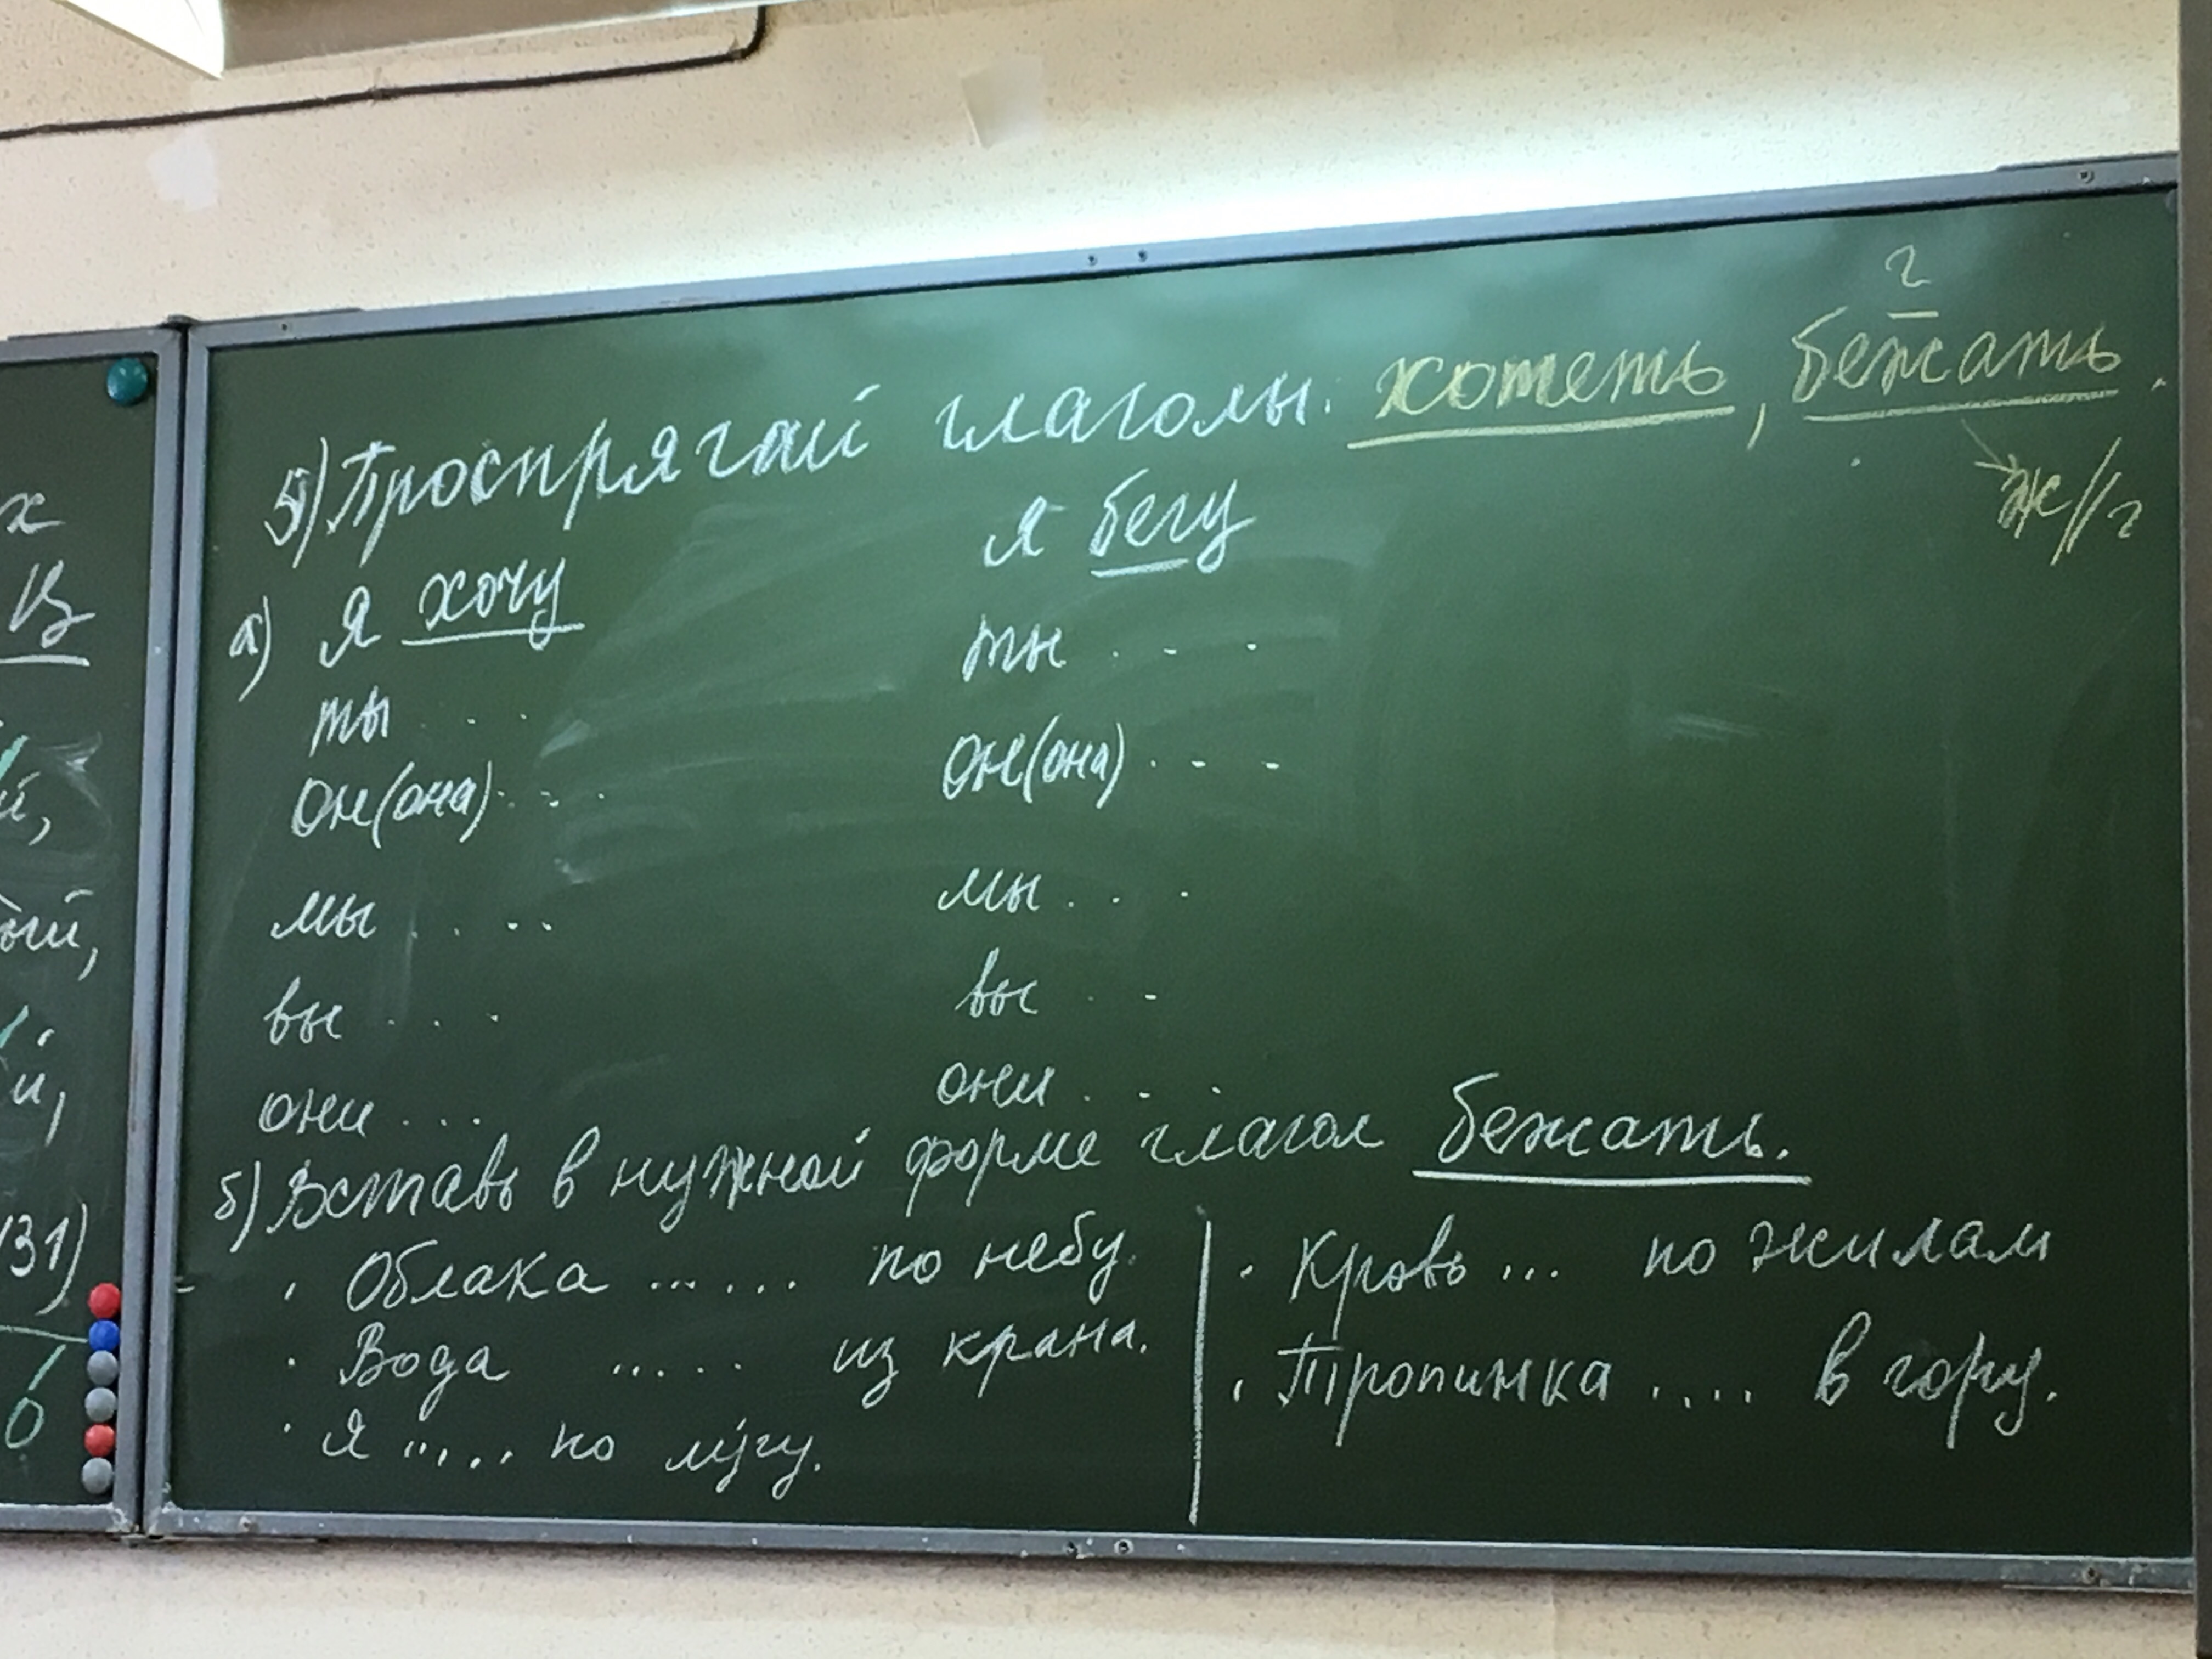 х
В
й,
ый,
й,
131)
б
г
5) Проспрягай глаголы: хотеть, бежать.
ж//г
а) Я хочу Я бегу
ты . . . ты . . .
он(она) . . . он(она) . . .
мы . . . . мы . . .
вы . . . вы . .
они . . . они . . .
б) Вставь в нужной форме глагол бежать.
· Облака ...... по небу.
· Вода ..... из крана.
· Я ..... по лу́гу.
· Кровь ... по жилам
· Тропинка .... в гору.